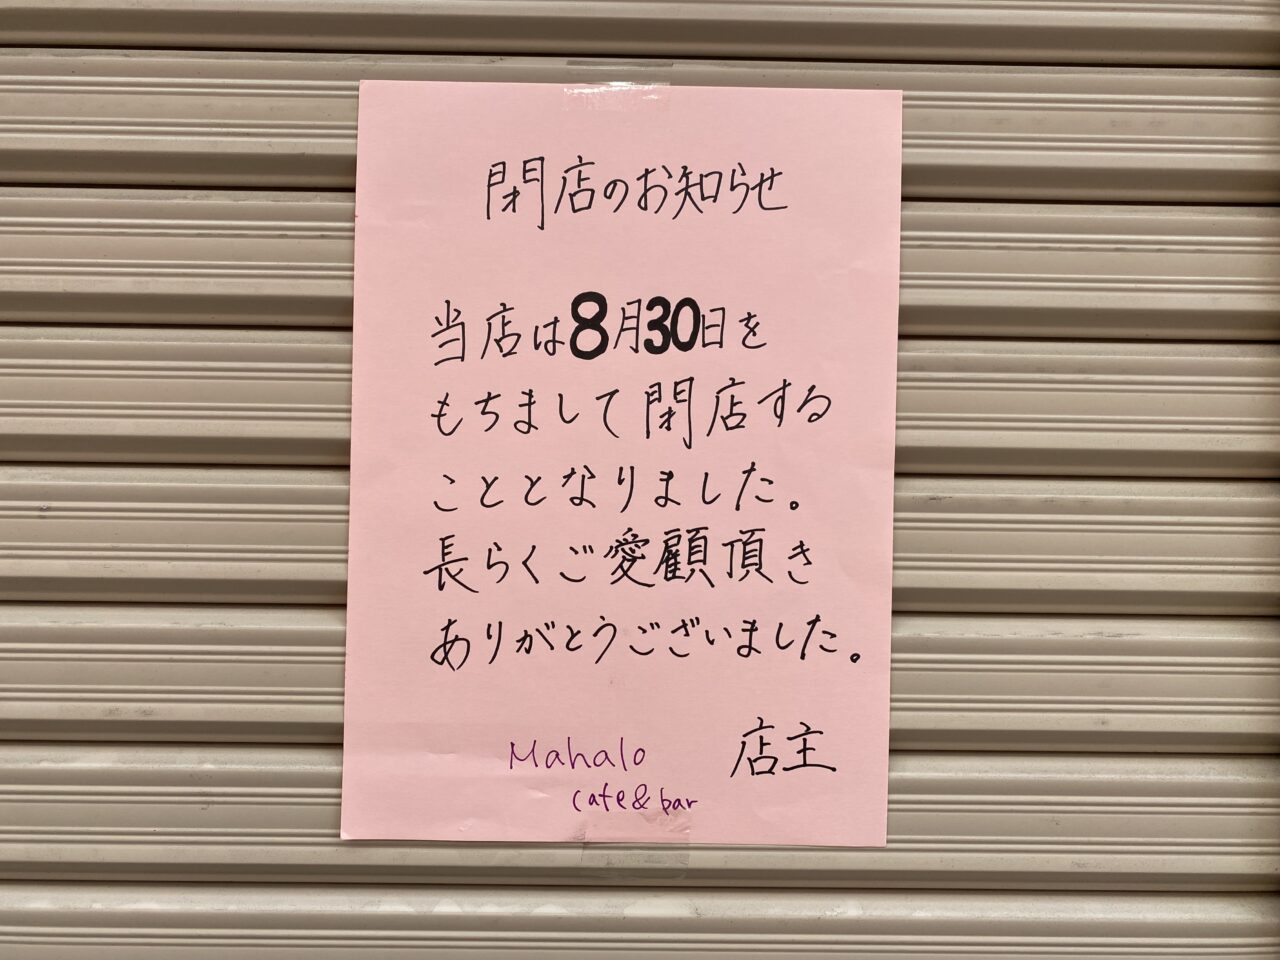 閉店のお知らせ
当店は8月30日を
もちまして閉店する
こととなりました。
長らくご愛顧頂き
ありがとうございました。
店主
Mahalo
cafe&bar